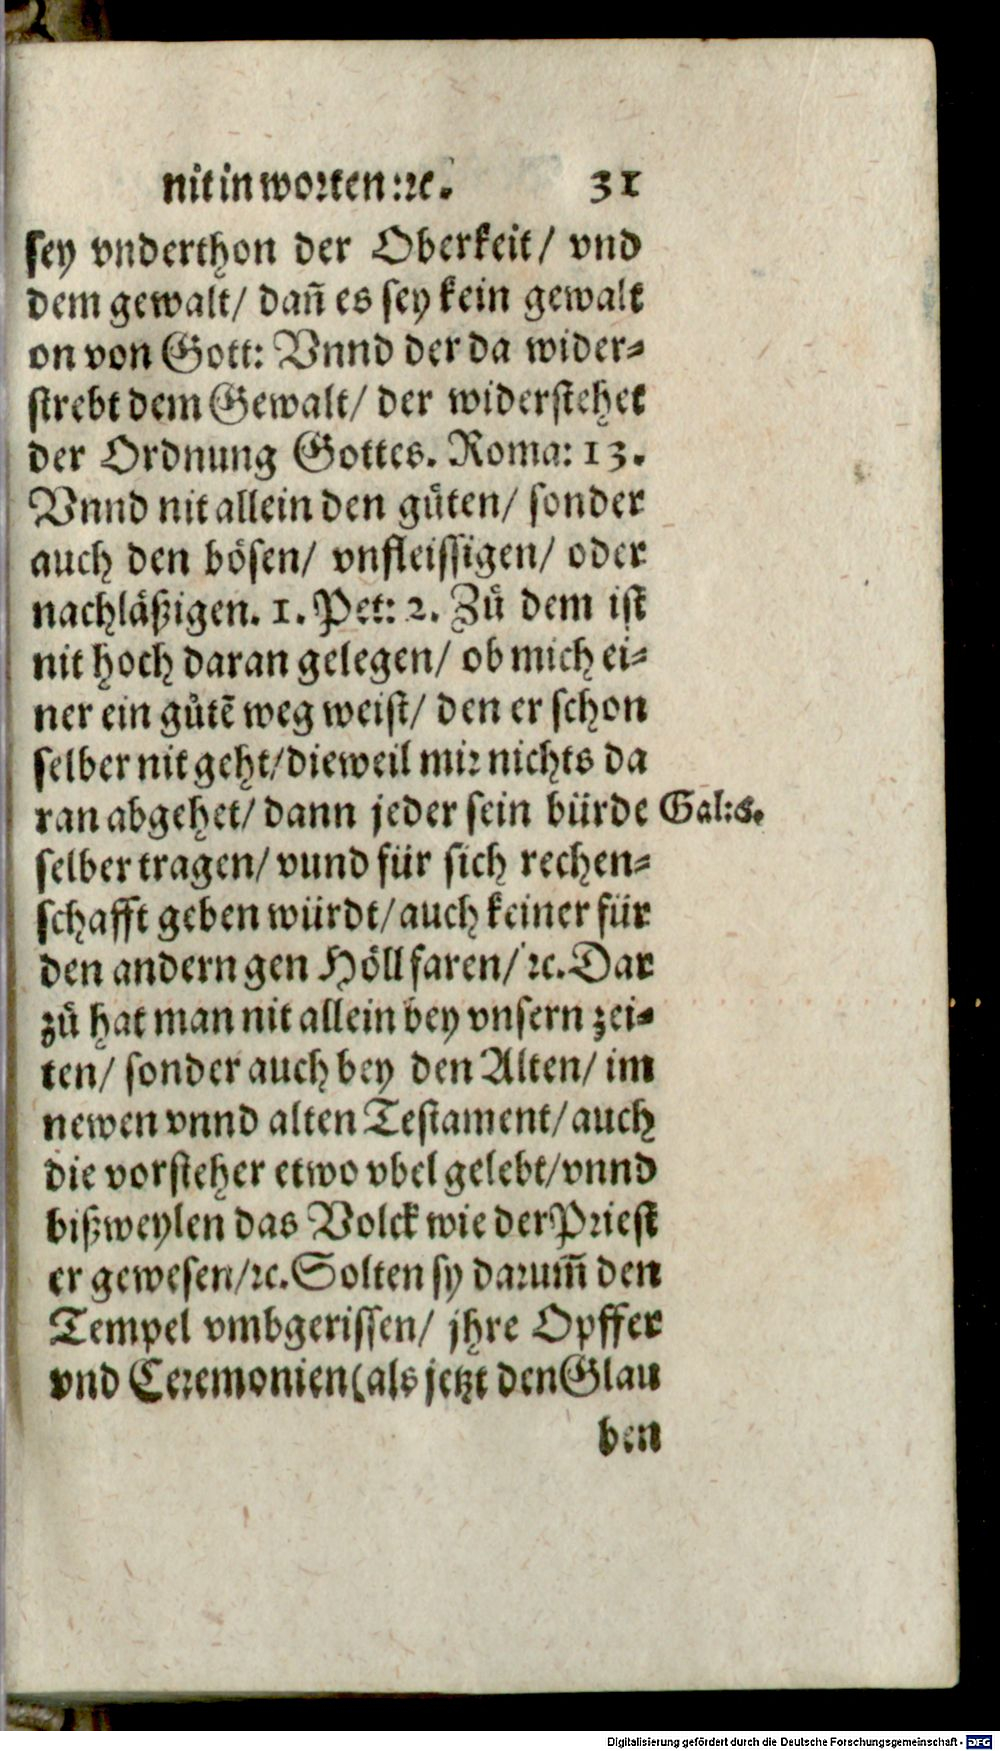 nit in worten: ꝛc. 31
sey vnderthon der Oberkeit/ vnd
dem gewalt/ dañ es sey kein gewalt
on von Gott: Vnnd der da wider⸗
strebt dem Gewalt/ der widerstehet
der Ordnung Gottes. Roma: 13.
Vnnd nit allein den gůten/ sonder
auch den bösen/ vnfleissigen/ oder
nachläßigen. 1. Pet: 2. Zů dem ist
nit hoch daran gelegen/ ob mich ei⸗
ner ein gůtē weg weist/ den er schon
selber nit geht/ dieweil mir nichts da
ran abgehet/ dann jeder sein bürde Gal: 6.
selber tragen/ vund für sich rechen⸗
schafft geben würdt/ auch keiner für
den andern gen Höll faren/ ꝛc. Dar
zů hat man nit allein bey vnsern zei⸗
ten/ sonder auch bey den Alten/ im
newen vnnd alten Testament/ auch
die vorsteher etwo vbel gelebt/ vnnd
bißweylen das Volck wie der Priest
er gewesen/ ꝛc. Solten sy darum̃ den
Tempel vmbgerissen/ jhre Opffer
vnd Ceremonien (als jetzt den Glau
ben
Digitalisierung gefördert durch die Deutsche Forschungsgemeinschaft - DFG